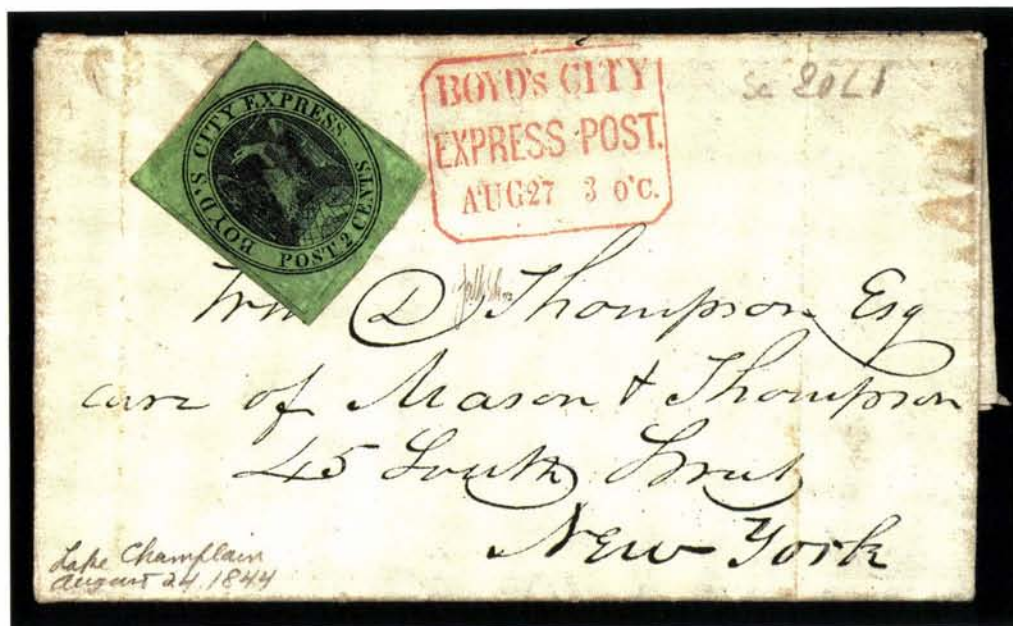 BOYD'S CITY EXPRESS
POST 2 CENTS
BOYD'S CITY
EXPRESS POST.
AUG 27 3 O'C.
Sc 20L1
Wm D Thompson Esq
care of Mason & Thompson
45 South Street
New York
Lake Champlain
August 24, 1844